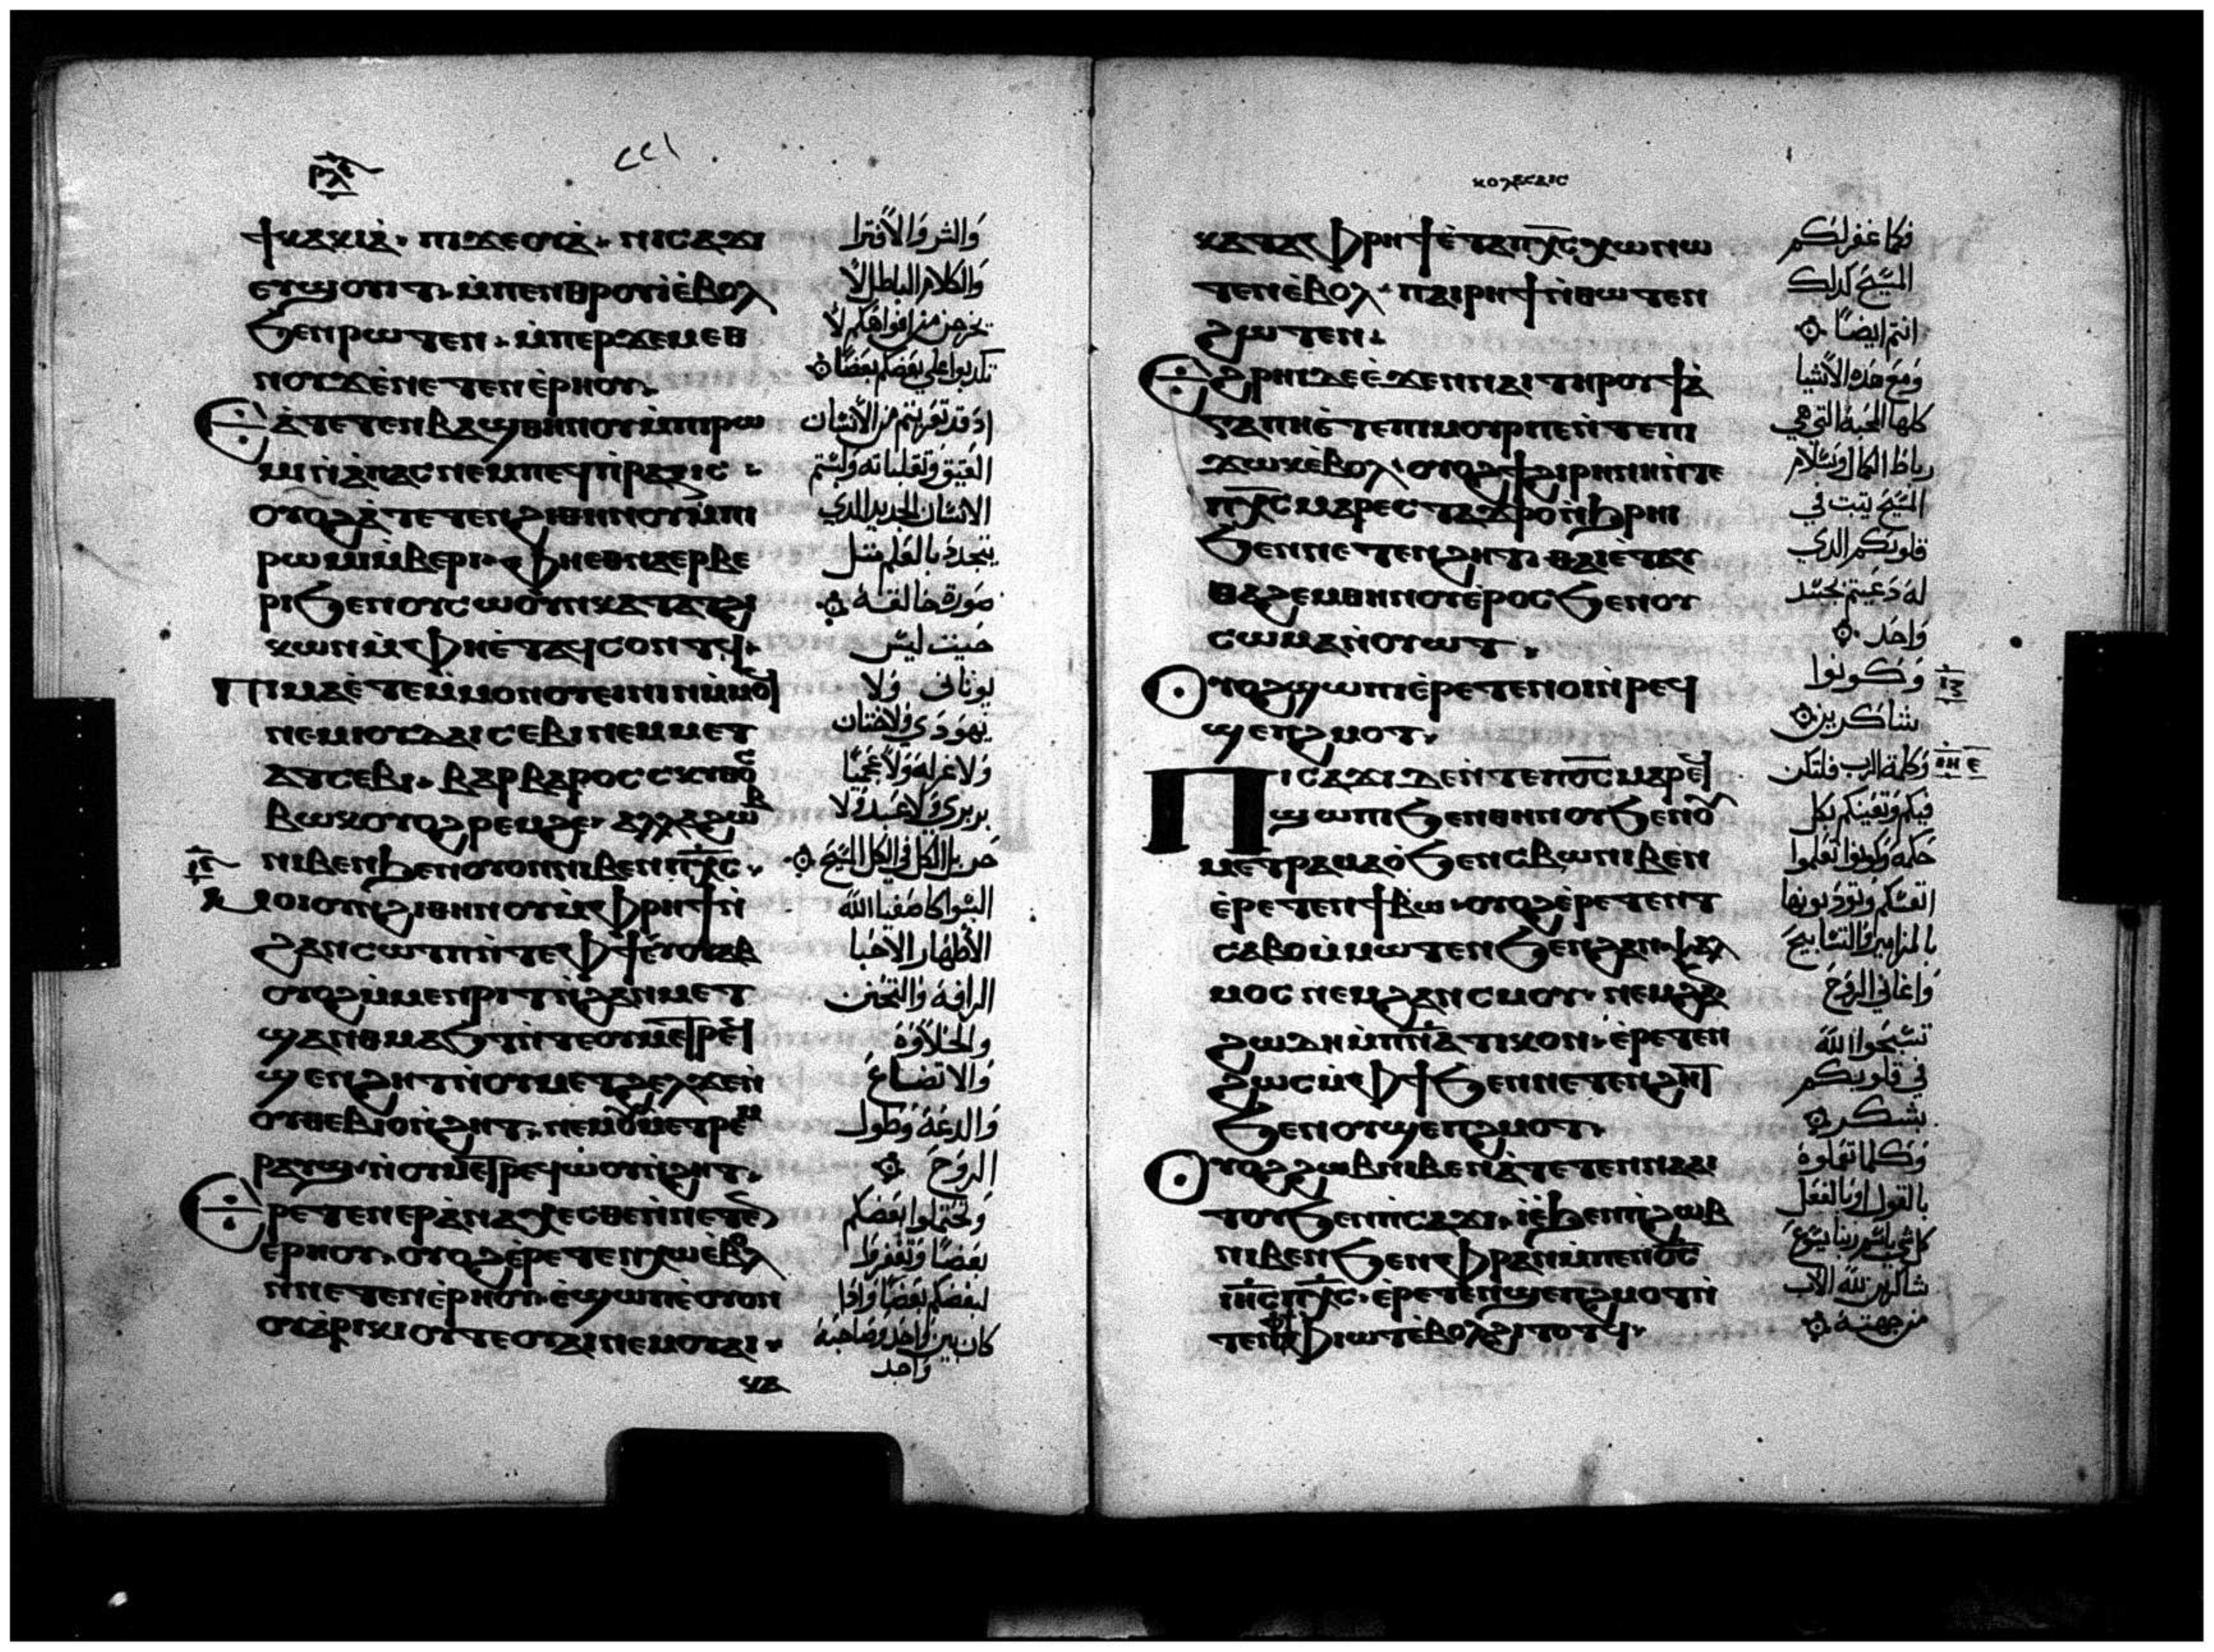 ⲣⲗⲉ
٢٢١
ϯⲕⲁⲕⲓⲁ̀· ⲡⲓϫⲉⲟⲩⲁ̀· ⲛⲓⲥⲁϫⲓ
ⲉⲧϣⲟⲩⲓⲧ· ⲙ̀ⲡⲉⲛⲑⲣⲟⲩⲓ̀ⲉ̀ⲃⲟⲗ
ϧⲉⲛⲣⲱⲧⲉⲛ· ⲙ̀ⲡⲉⲣϫⲉⲙⲉⲑ
ⲛⲟⲩϫⲉ̀ⲛⲉⲧⲉⲛⲉ̀ⲣⲏⲟⲩ·
Ⲉⲁ̀ⲧⲉⲧⲉⲛⲃⲁϣⲑⲏⲛⲟⲩⲙ̀ⲡⲓⲣⲱ
ⲙⲓⲛ̀ⲁ̀ⲡⲁⲥⲛⲉⲙⲛⲉϥⲡ̀ⲣⲁⲝⲓⲥ·
ⲟⲩⲟϩⲁ̀ⲧⲉⲧⲉⲛϩⲓⲑⲏⲛⲟⲩⲙ̀ⲡⲓ
ⲣⲱⲙⲓⲙ̀ⲃⲉⲣⲓ· ⲫⲏⲉⲑⲛⲁⲉⲣⲃⲉ
ⲣⲓϧⲉⲛⲟⲩⲥⲱⲟⲩⲛⲕⲁⲧⲁⲧϩⲓ
ⲕⲱⲛⲙ̀ⲫⲏⲉ̀ⲧⲁϥⲥⲟⲛⲧϥ·
Ⲡⲓⲙⲁⲉ̀ⲧⲉⲙ̀ⲙⲟⲛⲟⲩⲉⲓⲛⲓⲛⲙ̀ⲙⲟϥ
ⲛⲉⲙⲓⲟⲩⲇⲁⲓⲥⲉⲃⲓⲛⲉⲙⲙⲉⲧ
ⲁⲧⲥⲉⲃⲓ· ⲃⲁⲣⲃⲁⲣⲟⲥⲥⲕⲩⲑⲟⲥ
ⲃⲱⲕⲟⲩⲟϩⲣⲉⲙϩⲉ· ⲁⲗⲗⲁϩⲱⲃ
ⲛⲓⲃⲉⲛϧⲉⲛⲟⲩⲟⲛⲛⲓⲃⲉⲛⲡⲭ̅ⲥ̅·
Ⲙⲟⲓⲟⲩⲛϩⲓⲑⲏⲛⲟⲩⲙ̀ⲫⲣⲏϯⲛ̀
ϩⲁⲛⲥⲱⲧⲡⲛ̀ⲧⲉⲫϯⲉ̀ⲟⲩⲁⲃ
ⲟⲩⲟϩⲙ̀ⲙⲉⲛⲣⲓⲧⲛ̀ϩⲁⲛⲙⲉⲧ
ϣⲁⲛⲑⲙⲁϧⲧⲛ̀ⲧⲉⲟⲩⲙⲉⲧⲣⲉϥ
ϣⲉⲛϩⲏⲧⲛ̀ⲟⲩⲙⲉⲧϩⲉⲗϫⲉⲛ̀
ⲟⲩⲑⲉⲃⲓⲟⲛ̀ϩⲏⲧ· ⲛⲉⲙⲟⲩⲙⲉⲧⲣⲉⲙ
ⲣⲁⲩϣ· ⲛ̀ⲟⲩⲙⲉⲧⲣⲉϥⲱ̀ⲟⲩⲛ̀ϩⲏⲧ·
Ⲉⲣⲉⲧⲉⲛⲉⲣⲁ̀ⲛⲁⲭⲉⲥⲑⲉⲛ̀ⲛⲉⲧⲉⲛ
ⲉ̀ⲣⲏⲟⲩ· ⲟⲩⲟϩⲉ̀ⲣⲉⲧⲉⲛⲭⲱⲉ̀ⲃⲟⲗ
ⲛ̀ⲛⲉⲧⲉⲛⲉ̀ⲣⲏⲟⲩ· ⲉ̀ϣⲱⲡⲉ̀ⲟⲩⲟⲛ
ⲟⲩⲁ̀ⲣⲓⲕⲓⲟⲩⲧⲉⲟⲩⲁⲓⲛⲉⲙⲟⲩⲁⲓ·
ⲕⲁ
والشر والافترا
والكلام الباطل لا
يخرجن من افواهكم لا
تكدبوا على بعضكم بعضا
اد قد تعريتم من الانسان
العتيق وتقلباته ولبستم
الانسان الجديد الدي
يتجدد بالعلم مثل
صورة خالقه
حيث ليس
يوناني ولا
يهودي ولا ختان
ولا غرله ولا عجميا
بربري ولا عبد ولا
حر بل الكل في الكل المسيح
البسوا كاصفيا الله
الاطهار الاحبا
الرافة والتحنن
والحلاوة
والاتضاع
والدعة وطول
الروح
وتحتملوا بعضكم
بعضا وتغفروا
لبعضكم بعضا وادا
كان بين واحد وصاحبه
واحد
ⲕⲟⲗⲁⲥⲁⲓⲥ
ⲕⲁⲧⲁⲫⲣⲏϯⲉ̀ⲧⲁⲡⲭ̅ⲥ̅ⲭⲱⲛⲱ
ⲧⲉⲛⲉ̀ⲃⲟⲗ· ⲡⲁⲓⲣⲏϯⲛ̀ⲑⲱⲧⲉⲛ
ϩⲱⲧⲉⲛ·
Ⲉϩⲣⲏⲓⲇⲉⲉ̀ϫⲉⲛⲛⲁⲓⲧⲏⲣⲟⲩϯⲁ̀
ⲅⲁⲡⲏⲉ̀ⲧⲉⲡⲓⲙⲟⲩⲣⲡⲉⲛ̀ⲧⲉⲡⲓ
ϫⲱⲕⲉ̀ⲃⲟⲗ· ⲟⲩⲟϩϯϩⲓⲣⲏⲛⲏⲛ̀ⲧⲉ
ⲡⲭ̅ⲥ̅ⲙⲁⲣⲉⲥⲧⲁϫⲣⲟⲛ̀ϩⲣⲏⲓ
ϧⲉⲛⲛⲉⲧⲉⲛϩⲏⲧ· ⲑⲁⲓⲉ̀ⲧⲁⲩ
ⲑⲁϩⲉⲙⲑⲏⲛⲟⲩⲉ̀ⲣⲟⲥϧⲉⲛⲟⲩ
ⲥⲱⲙⲁⲛ̀ⲟⲩⲱⲧ·
Ⲟⲩⲟϩϣⲱⲡⲓⲉ̀ⲣⲉⲧⲉⲛⲟⲓⲛ̀ⲣⲉϥ
ϣⲉⲡϩⲙⲟⲧ·
Ⲡⲓⲥⲁϫⲓⲇⲉⲛ̀ⲧⲉⲡⲟ̅ⲥ̅ⲙⲁⲣⲉϥ
ϣⲱⲡⲓϧⲉⲛⲑⲏⲛⲟⲩϧⲉⲛⲟⲩ
ⲙⲉⲧⲣⲁⲙⲁⲟ̀ϧⲉⲛⲥⲃⲱⲛⲓⲃⲉⲛ
ⲉ̀ⲣⲉⲧⲉⲛϯⲥⲃⲱ· ⲟⲩⲟϩⲉ̀ⲣⲉⲧⲉⲛⲧ
ⲥⲁⲃⲟⲙ̀ⲙⲱⲧⲉⲛϧⲉⲛϩⲁⲛⲯⲁⲗ
ⲙⲟⲥⲛⲉⲙϩⲁⲛⲥⲙⲟⲩ· ⲛⲉⲙϩⲁⲛ
ϩⲱⲇⲏⲙ̀ⲡⲛⲁⲧⲓⲕⲟⲛ· ⲉ̀ⲣⲉⲧⲉⲛ
ϩⲱⲥⲙ̀ⲫϯϧⲉⲛⲛⲉⲧⲉⲛϩⲏⲧ
ϧⲉⲛⲟⲩϣⲉⲡϩⲙⲟⲧ·
Ⲟⲩⲟϩϩⲱⲃⲛⲓⲃⲉⲛⲁ̀ⲧⲉⲧⲉⲛⲛⲁⲁⲓ
ⲧⲟⲩϧⲉⲛⲡ̀ⲥⲁϫⲓ· ⲓⲉϧⲉⲛⲡ̀ϩⲱⲃ
ⲛⲓⲃⲉⲛϧⲉⲛⲫⲣⲁⲛⲙ̀ⲡⲉⲛⲟ̅ⲥ̅
ⲓⲏ̅ⲥ̅ⲡⲭ̅ⲥ̅· ⲉ̀ⲣⲉⲧⲉⲛϣⲉⲡϩⲙⲟⲧⲛ̀
ⲧⲉⲛⲫϯⲫⲓⲱⲧⲉ̀ⲃⲟⲗϩⲓⲧⲟⲧϥ·
فكما غفر لكم
المسيح كدلك
انتم ايضا
ومع هده الاشيا
كلها المحبة التي هي
رباط الكمال وسلام
المسيح يثبت في
قلوبكم الدي
له دعيتم بجسد
واحد
وكونوا
شاكرين
وكلمة الرب فلتكن
فيكم وتغنيكم بكل
حكمه وكونوا تعلموا
انفسكم وتودبونها
بالمزامير والتسابيح
واغاني الروح
تسبحوا الله
في قلوبكم
بشكر
وكلما تعملوه
بالقول او بالفعل
كل شي باسم ربنا يسوع
شاكرين لله الاب
من جهته